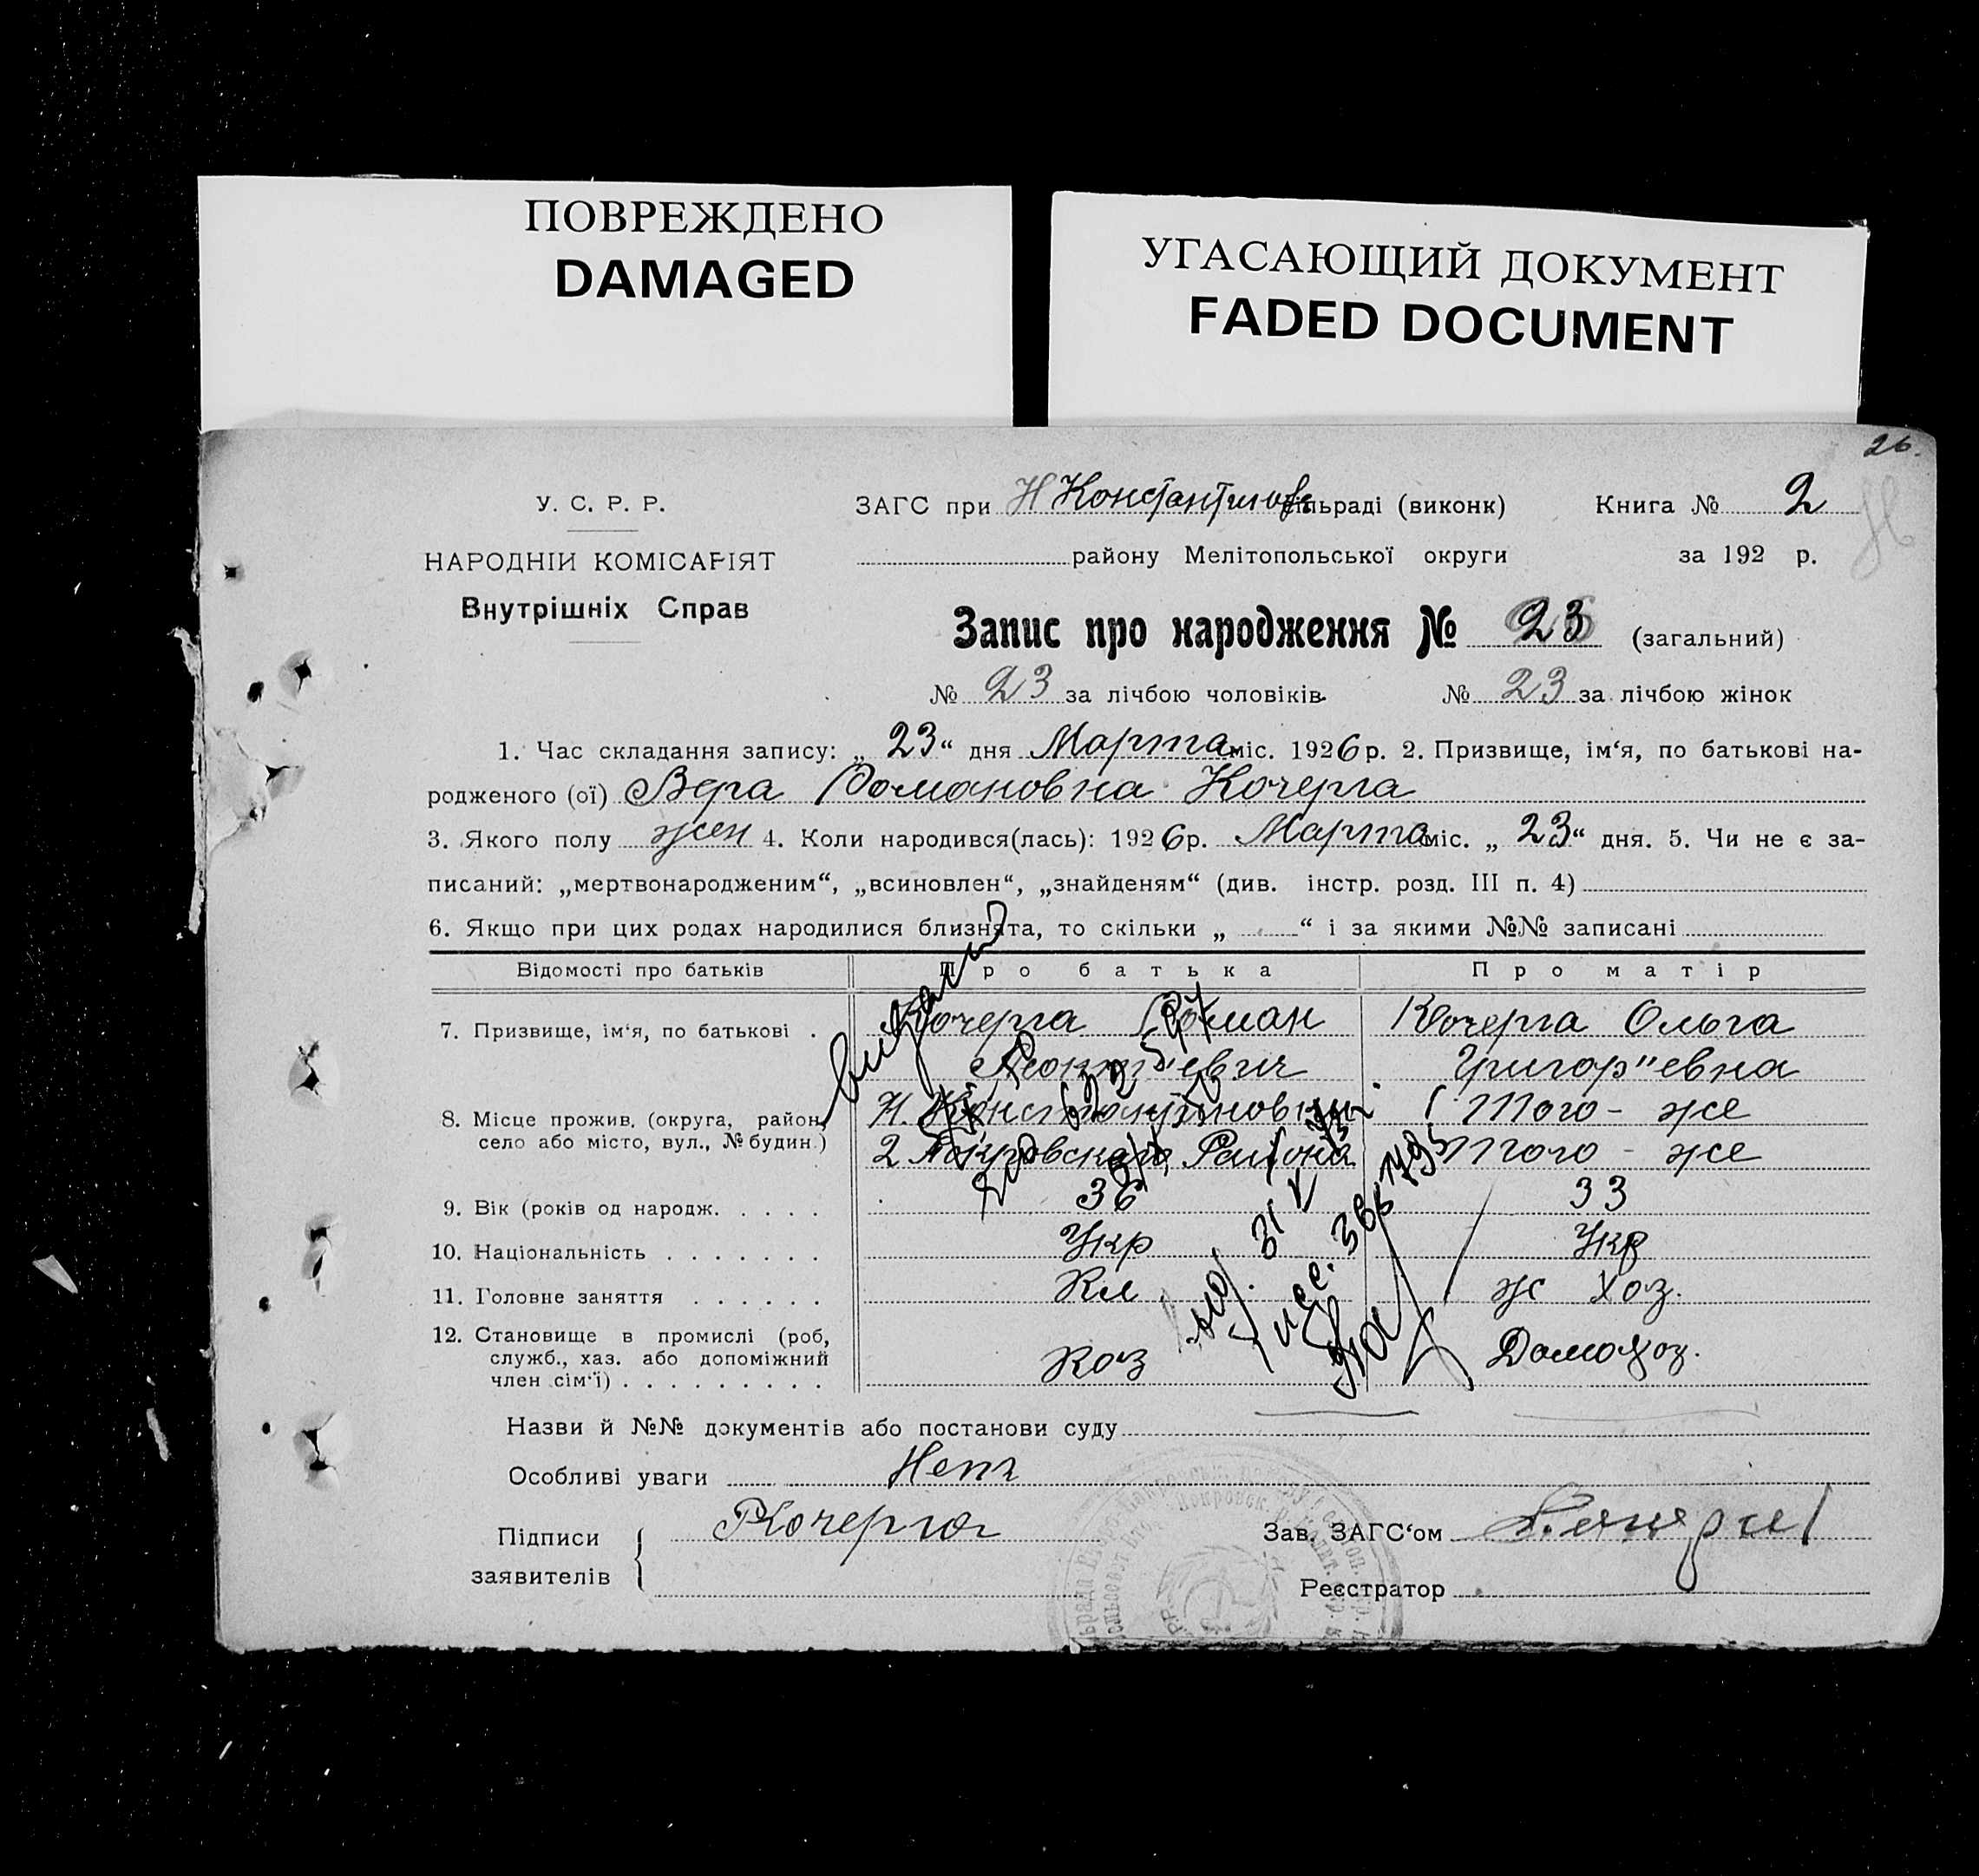 ПОВРЕЖДЕНО
DAMAGED
УГАСАЮЩИЙ ДОКУМЕНТ
FADED DOCUMENT
26.
У. С. Р. Р.
НАРОДНІЙ КОМІСАРІЯТ
Внутрішніх Справ
ЗАГС при Н Константинов сільраді (виконк) Книга № 2
району Мелітопольської округи за 192 р.
Запис про народження № 23 (загальний)
№ 23 за лічбою чоловіків. № 23 за лічбою жінок
1. Час складання запису: „ 23 “ дня Марта міс. 1926 р. 2. Призвище, ім‘я, по батькові на-
родженого (ої) Вера Романовна Кочерга
3. Якого полу жен 4. Коли народився(лась): 1926 р. Марта міс. „ 23 “ дня. 5. Чи не є за-
писаний: „мертвонародженим“, „всиновлен“, „знайденям“ (див. інстр. розд. III п. 4)
6. Якщо при цих родах народилися близнята, то скільки „ “ і за якими №№ записані
Відомості про батьків Про батька Про матір
7. Призвище, ім‘я, по батькові . Кочерга Роман Кочерга Ольга
Леонтіевич Григор"евна
8. Місце прожив. (округа, район, Н. Константиновка Того - же
село або місто, вул., № будин.) 2 Покровскаго Района Того - же
9. Вік (років од народж. . . . . 36 33
10. Національність . . . . . . . Укр Укр
11. Головне заняття . . . . . . Кл ж Хоз.
12. Становище в промислі (роб,
служб., хаз. або допоміжний
член сім‘ї) . . . . . . . . . Хоз Домохоз.
Назви й №№ документів або постанови суду
Особливі уваги Нет
Підписи
заявителів
Кочерга
Зав. ЗАГС‘ом
Реєстратор